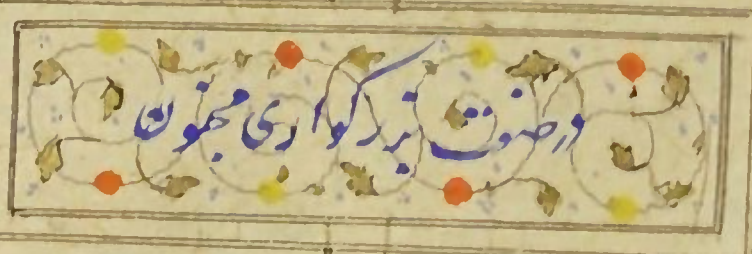 در صفت بزرگواری مجنون